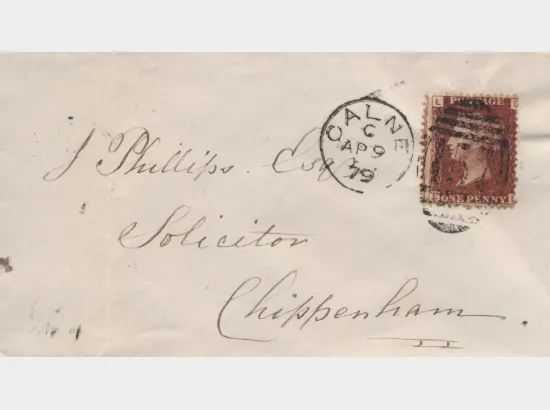 J Phillips. Esq
Solicitor
Chippenham.
CALNE
C
AP 9
79
L POSTAGE
ONE PENNY